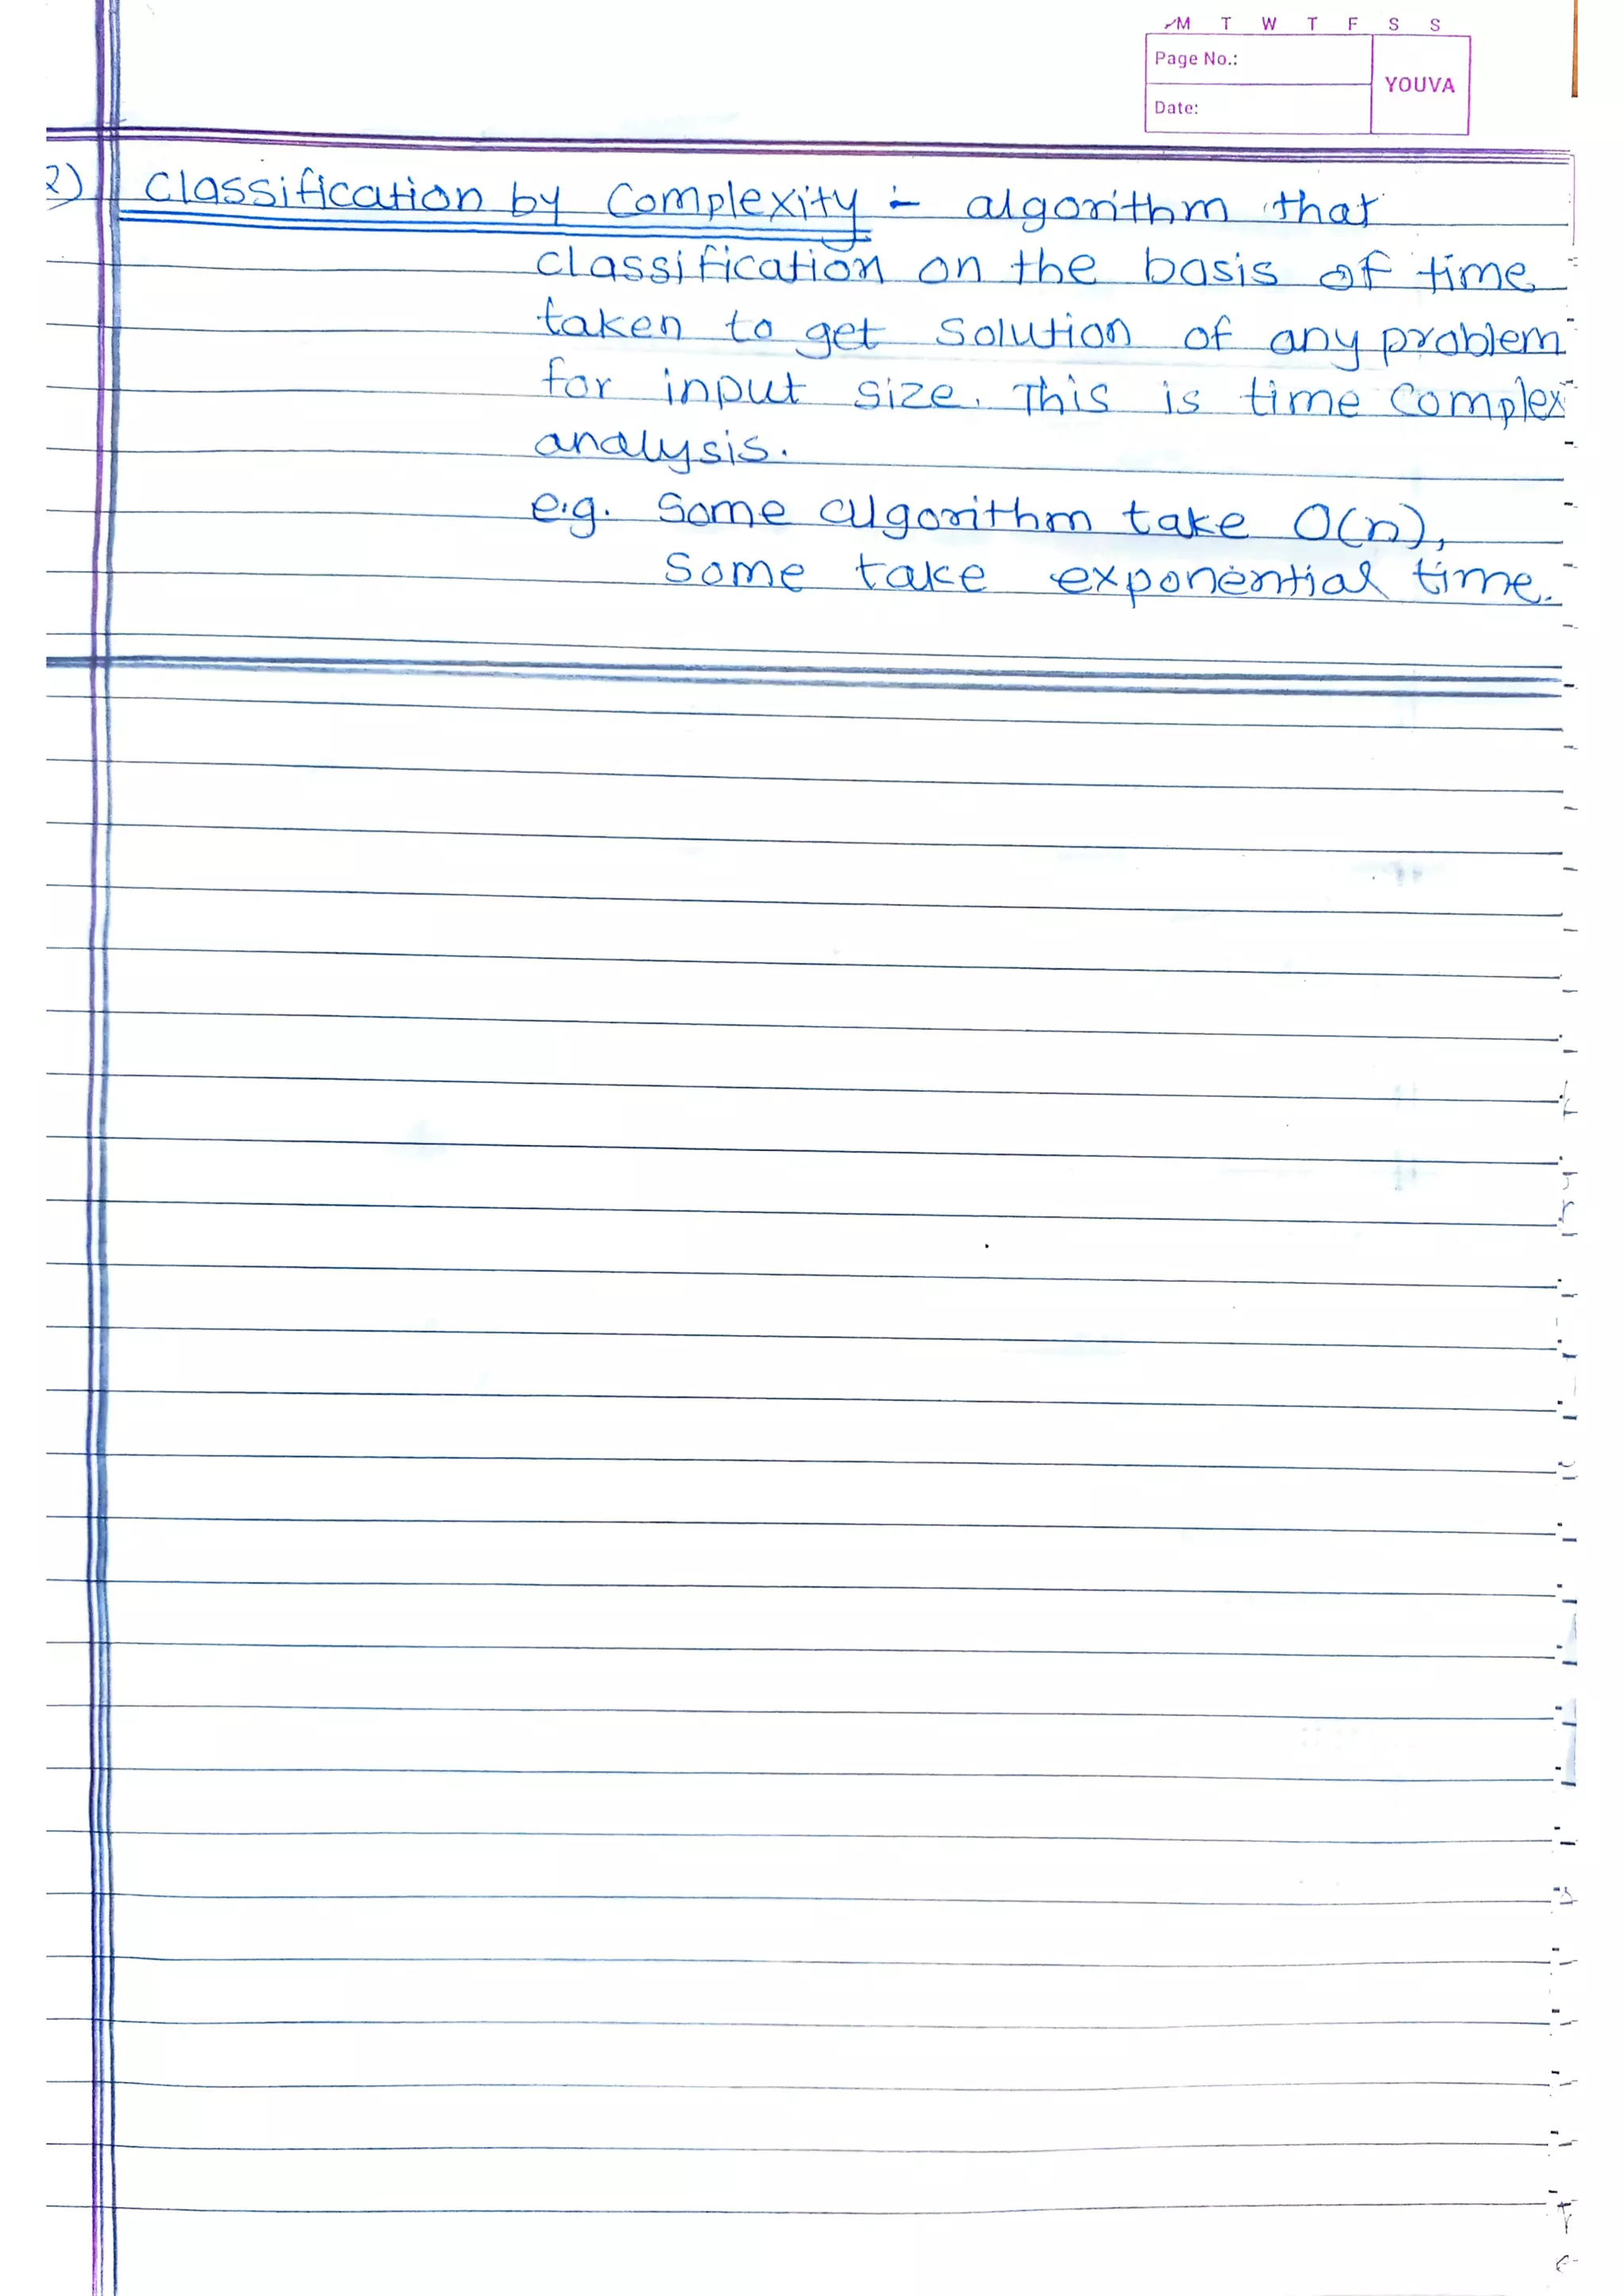 M T W T F S S
Page No.:
YOUVA
Date:
2) Classification by Complexity :- algorithm that
classification on the basis of time
taken to get solution of any problem
for input size. This is time Complex
analysis.
e.g. Some algorithm take O(n),
Some take exponential time.